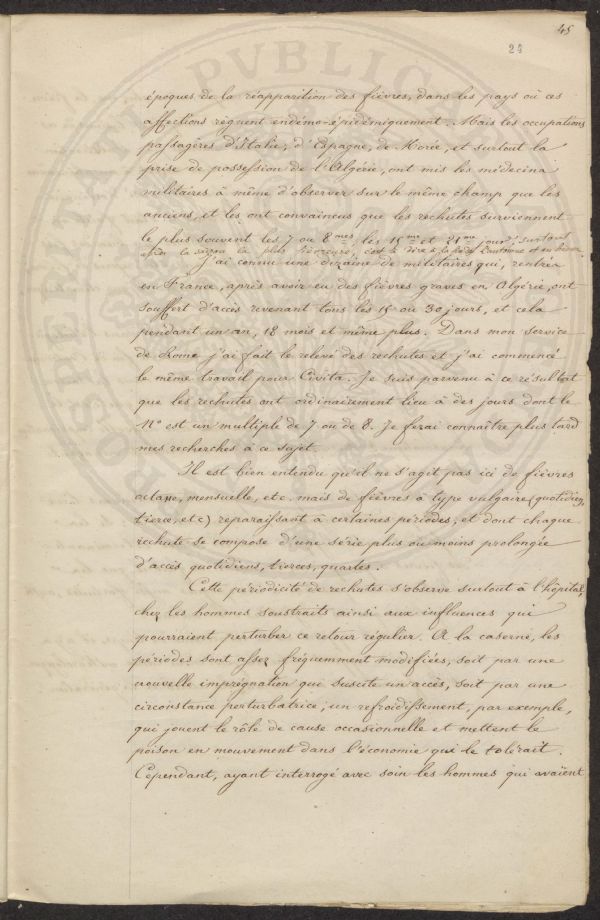 45
24
époques de la réapparition des fièvres, dans les pays où ces
affections règnent endémo-épidémiquement. Mais les occupations
passagères d'Italie, d'Espagne, de Morée, et surtout la
prise de possession de l'Algérie, ont mis les médecins
militaires à même d'observer sur le même champ que les
anciens, et les ont convaincus que les rechutes surviennent
le plus souvent les 7 ou 8mes, les 15me et 21me jours, surtout
après la saison la plus fiévreuse, c'est à dire à la fin de l'automne et en hiver.
J'ai connu une dizaine de militaires qui, rentrés
en France, après avoir eu des fièvres graves en Algérie, ont
souffert d'accès revenant tous les 15 ou 30 jours, et cela
pendant un an, 18 mois et même plus. Dans mon service
de Rome j'ai fait le relevé des rechutes et j'ai commencé
le même travail pour Civita. Je suis parvenu à ce résultat
que les rechutes ont ordinairement lieu à des jours dont le
No est un multiple de 7 ou de 8. Je ferai connaître plus tard
mes recherches à ce sujet.
Il est bien entendu qu'il ne s'agit pas ici de fièvres
octane, mensuelle, etc. mais de fièvres à type vulgaire (quotidien,
tierce, etc) reparaissant à certaines périodes, et dont chaque
rechute se compose d'une série plus ou moins prolongée
d'accès quotidiens, tierces, quartes.
Cette périodicité de rechutes s'observe surtout à l'hôpital,
chez les hommes soustraits ainsi aux influences qui
pourraient perturber ce retour régulier. A la caserne, les
périodes sont assez fréquemment modifiées, soit par une
nouvelle imprégnation qui suscite un accès, soit par une
circonstance perturbatrice, un refroidissement, par exemple,
qui jouent le rôle de cause occasionnelle et mettent le
poison en mouvement dans l'économie qui le tolérait.
Cependant, ayant interrogé avec soin les hommes qui avaient